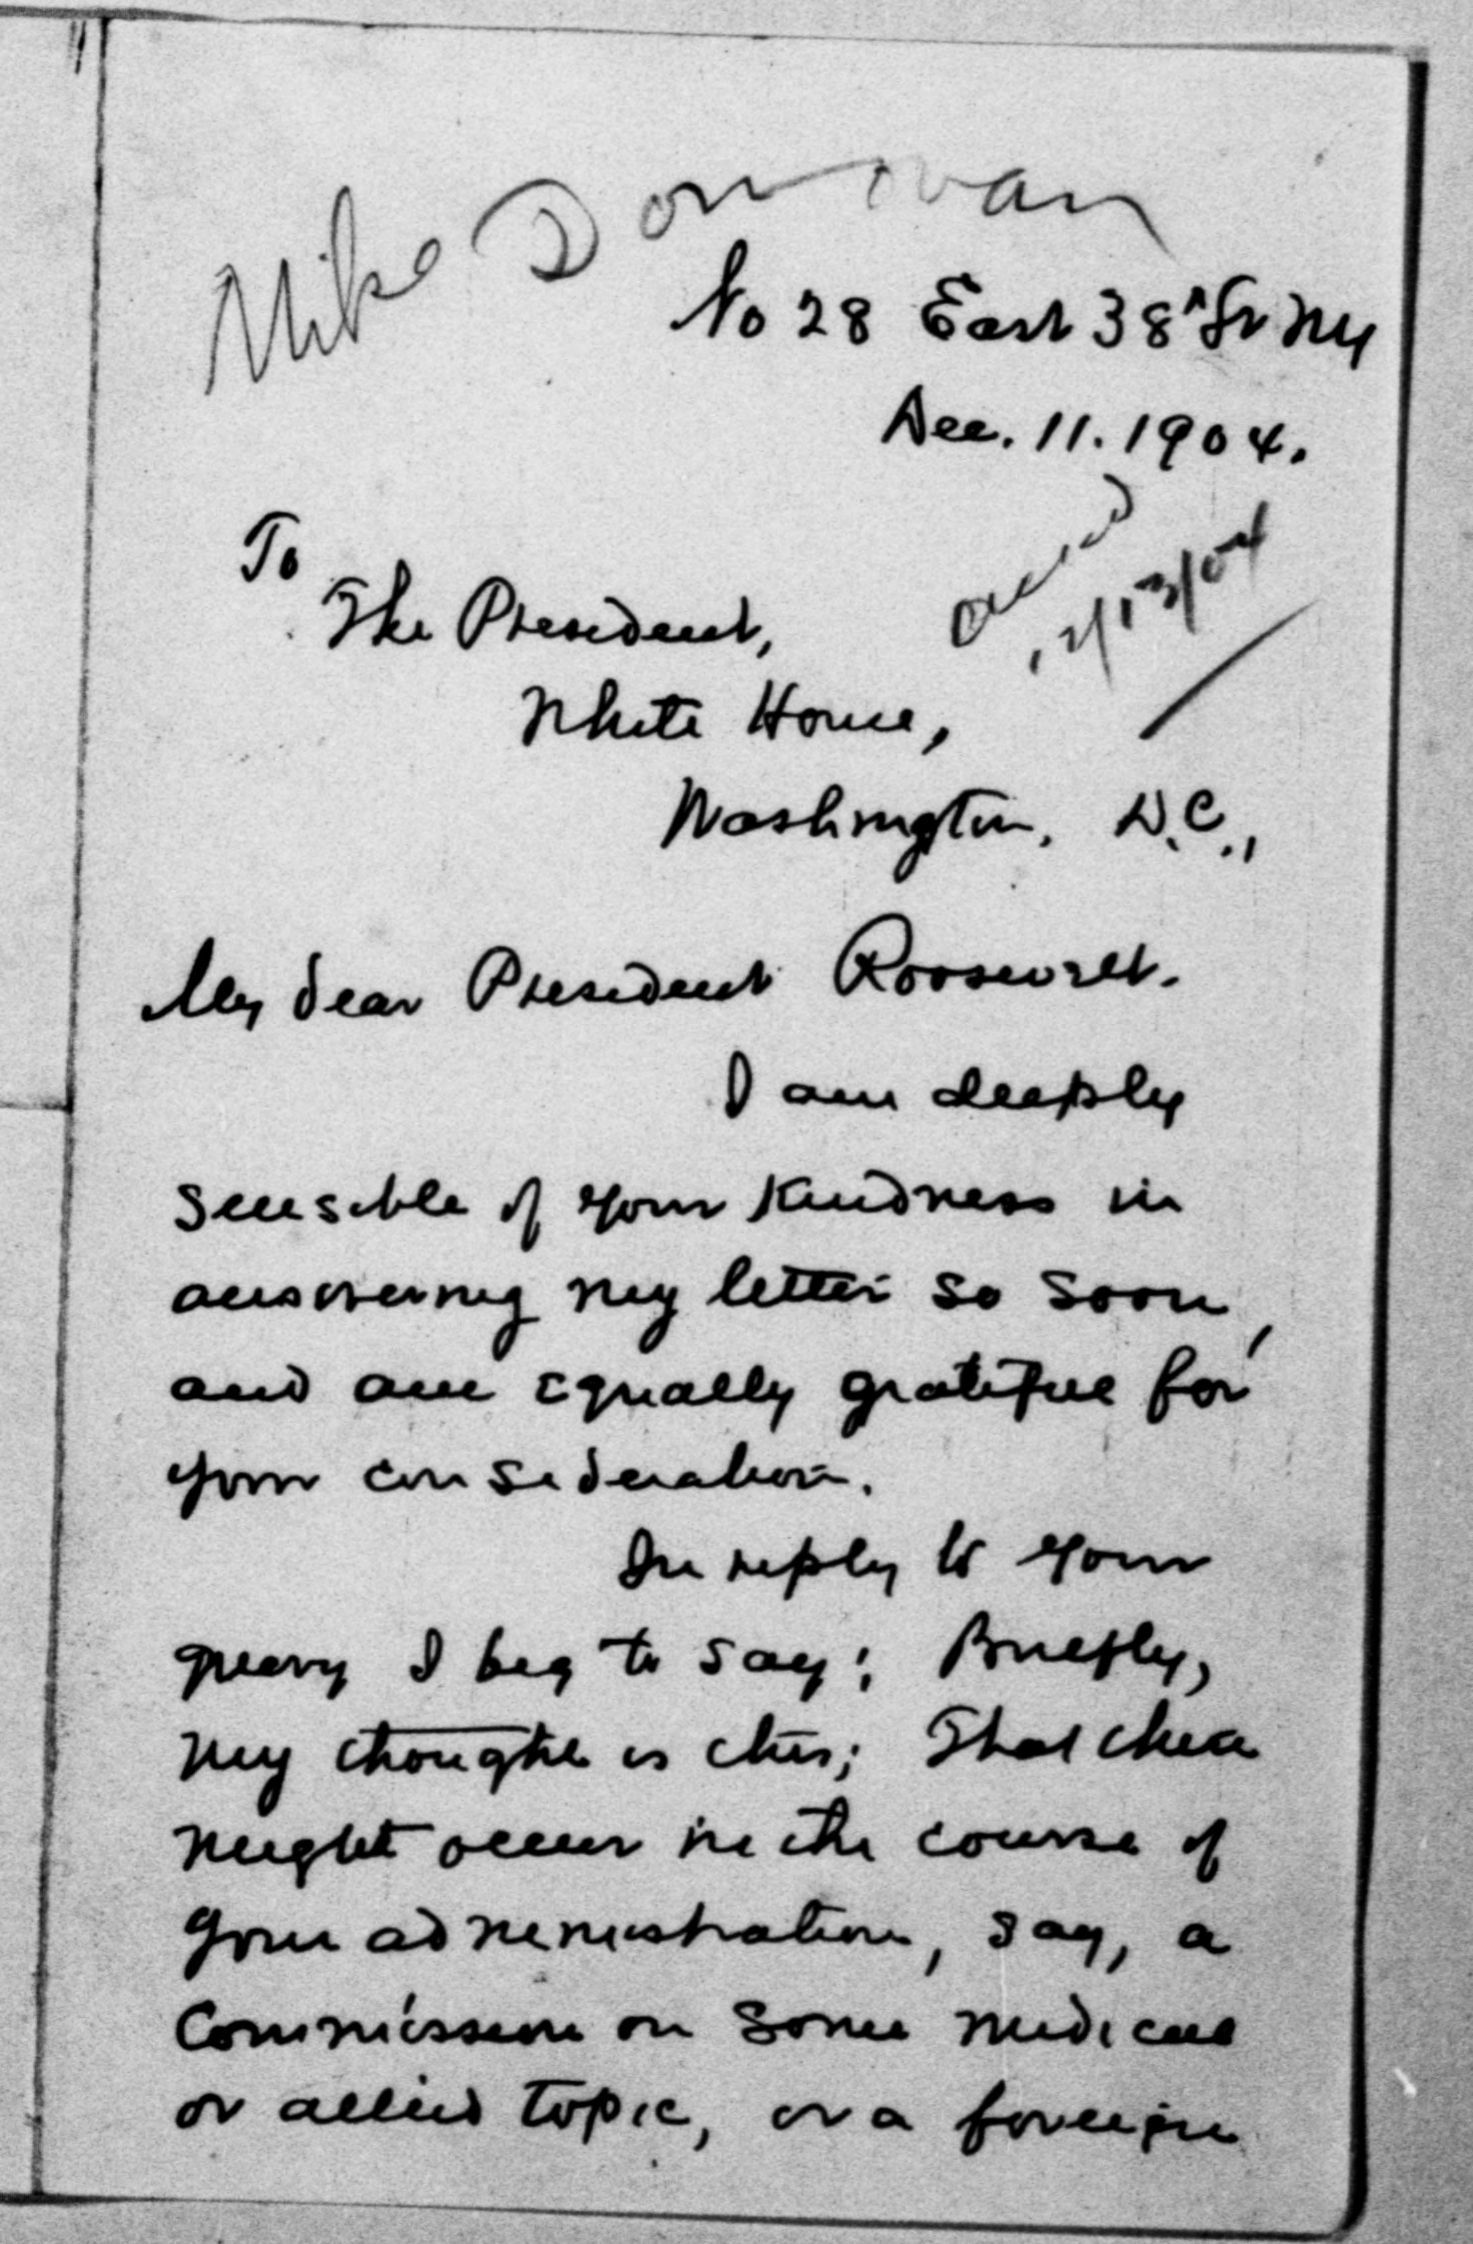 Mike Donovan
No 28 East 38th St NY
Dec. 11. 1904.
To
The President,
White House,
Washington, D.C.,
12/13/04
My dear President Roosevelt.
I am deeply
sensible of your kindness in
answering my letter so soon,
and am equally grateful for
your consideration.
In reply to your
query I beg to say; Briefly,
my thought is this; That there
might occur in the course of
your administration, say, a
Commission on some medical
or allied topic, or a foreign